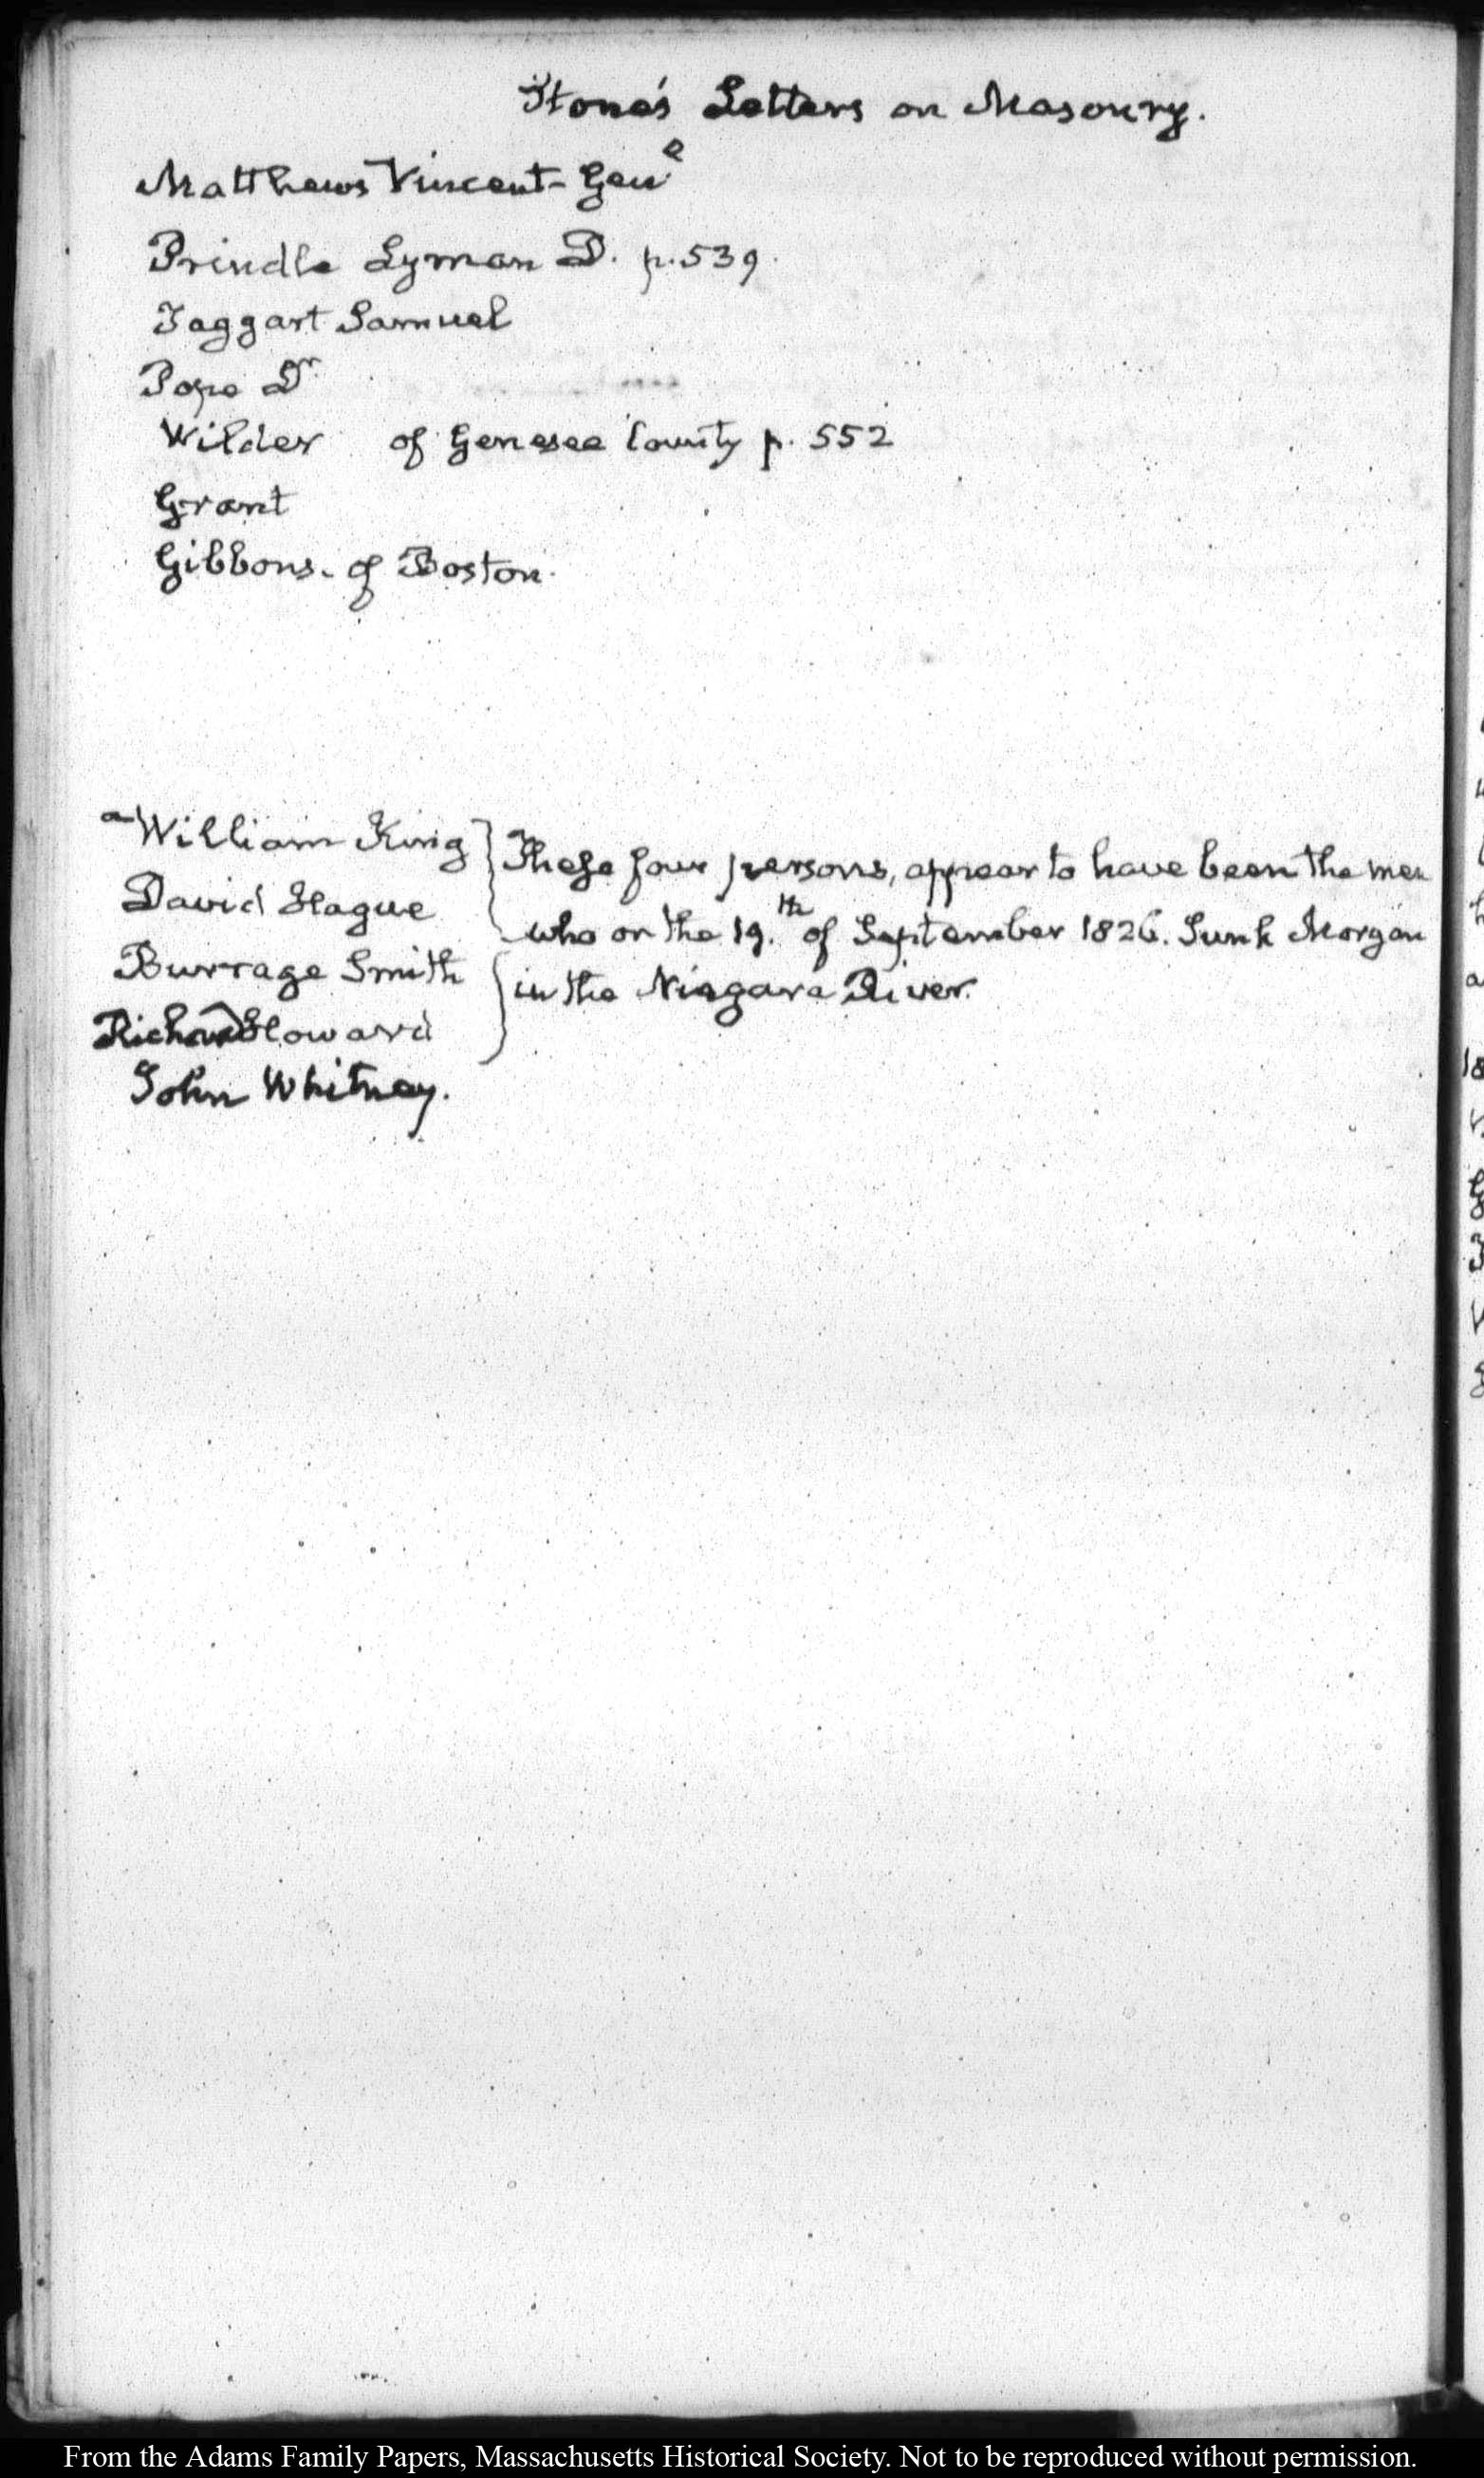 Stone's Letters on Masonry.
Matthews Vincent - Genl
Prindle Lyman D. p. 539.
Taggart Samuel
Pope Dr
Wilder of Genesee County p. 552
Grant
Gibbons. of Boston.
William King
David Hague
Burrage Smith
Richard Howard
John Whitney.
These four persons, appear to have been the men
who on the 19.th of September 1826. Sunk Morgan
in the Niagara River.
From the Adams Family Papers, Massachusetts Historical Society. Not to be reproduced without permission.